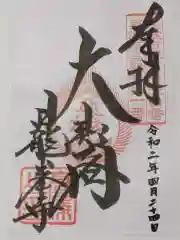 奉拝
令和二年四月二十四日
大悲閣
龍峯寺